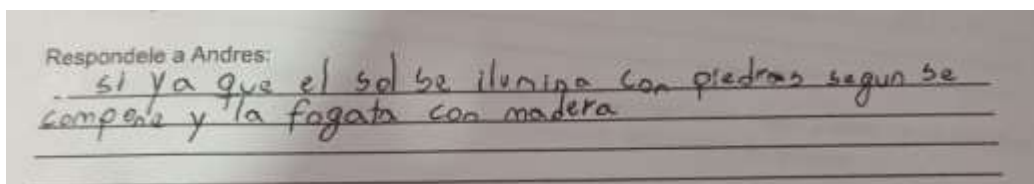 Respondele a Andres:
si ya que el sol se ilumina con piedras segun se
compone y la fogata con madera